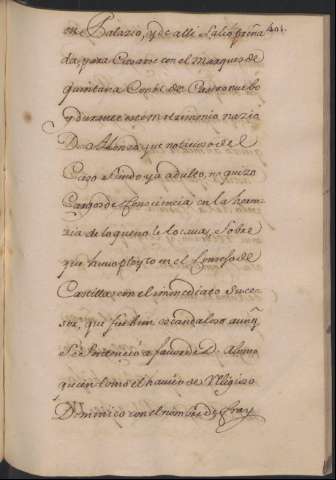 401.
en Palazio, y de alli salió preña
da, para Casarse con el Marques de
quintana Conde de Castronuebo
y durante este matrimonio nazio
Dn Alonso, que notizioso de el
Caso siendo ya adulto, no quizo
Cargos de Conciencia en la heren
zia de lo que no le tocava, sobre
que huvo pleyto en el Consejo de
Castilla, con el immediato suce-
sor, que fue bien escandaloso aunq
se sentenció a favor de D. Alonso
quien tomo el havito de Religioso
Dominico con el nombre de Fray